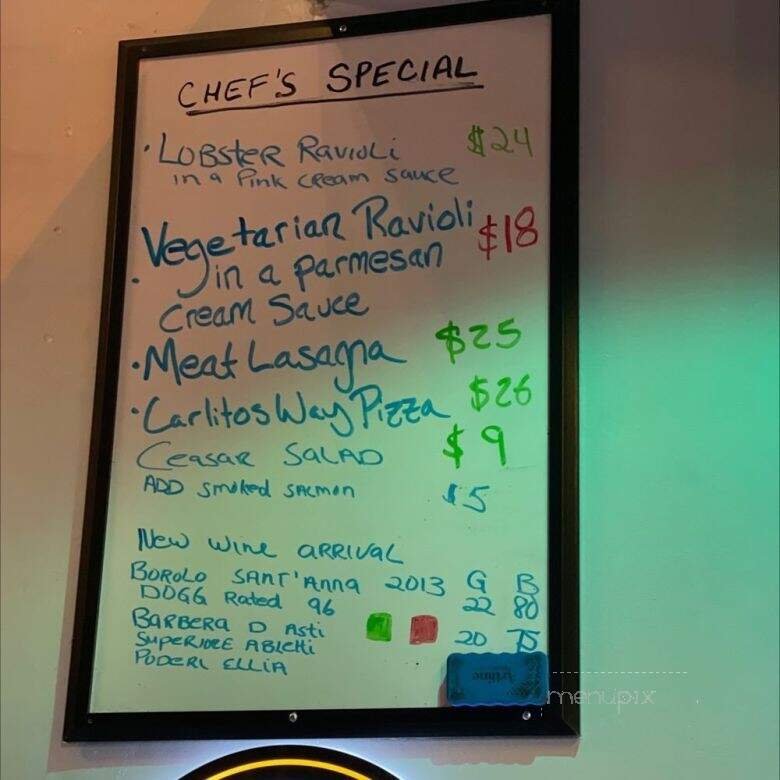 CHEF'S SPECIAL
• LOBSTER RAVIOLI $24
in a Pink cream sauce
Vegetarian Ravioli $18
• in a parmesan
cream Sauce
• Meat Lasagna $25
• Carlitos Way Pizza $26
Ceasar SALAD $9
ADD smoked SALMON $5
New wine ARRIVAL
BOROLO SANT'Anna 2013 G B
DOGG Rated 96 22 80
BARBERA D Asti 20 75
SUPERIORE ABLETTI
PODERI ELLIA
Artline
menupix